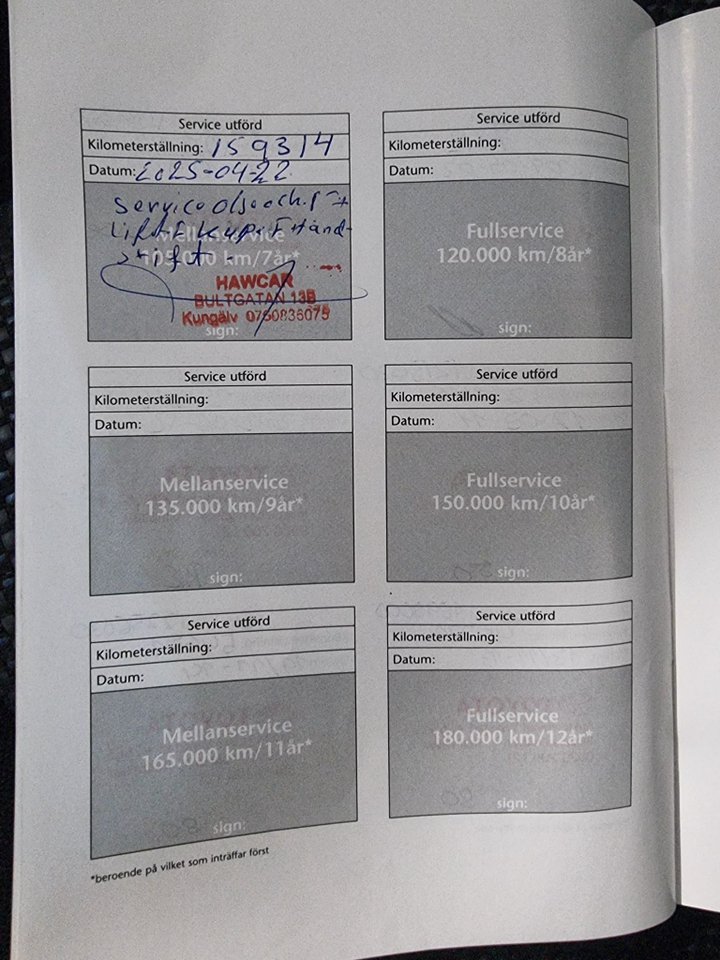 Service utförd
Kilometerställning: 159314
Datum: 2025-04-22
service olja och
Mellanservice
105.000 km/7år*
HAWCAR
BULTGATAN 13B
Kungälv 0760836075
sign:
Service utförd
Kilometerställning:
Datum:
Fullservice
120.000 km/8år*
sign:
Service utförd
Kilometerställning:
Datum:
Mellanservice
135.000 km/9år*
sign:
Service utförd
Kilometerställning:
Datum:
Fullservice
150.000 km/10år*
sign:
Service utförd
Kilometerställning:
Datum:
Mellanservice
165.000 km/11år*
sign:
Service utförd
Kilometerställning:
Datum:
Fullservice
180.000 km/12år*
sign:
*beroende på vilket som inträffar först